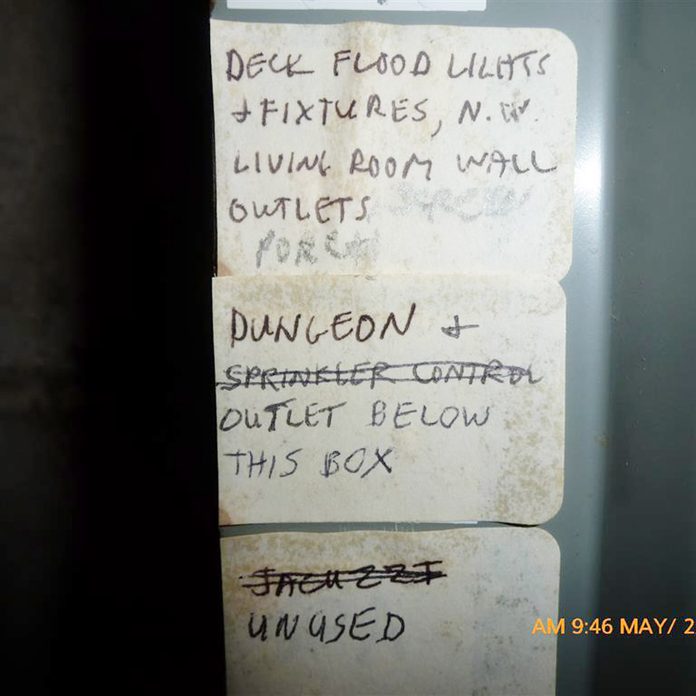 DECK FLOOD LIGHTS
+ FIXTURES, N.W.
LIVING ROOM WALL
OUTLETS SCREEN
PORCH
DUNGEON +
SPRINKLER CONTROL
OUTLET BELOW
THIS BOX
JACUZZI
UNUSED
AM 9:46 MAY/ 2